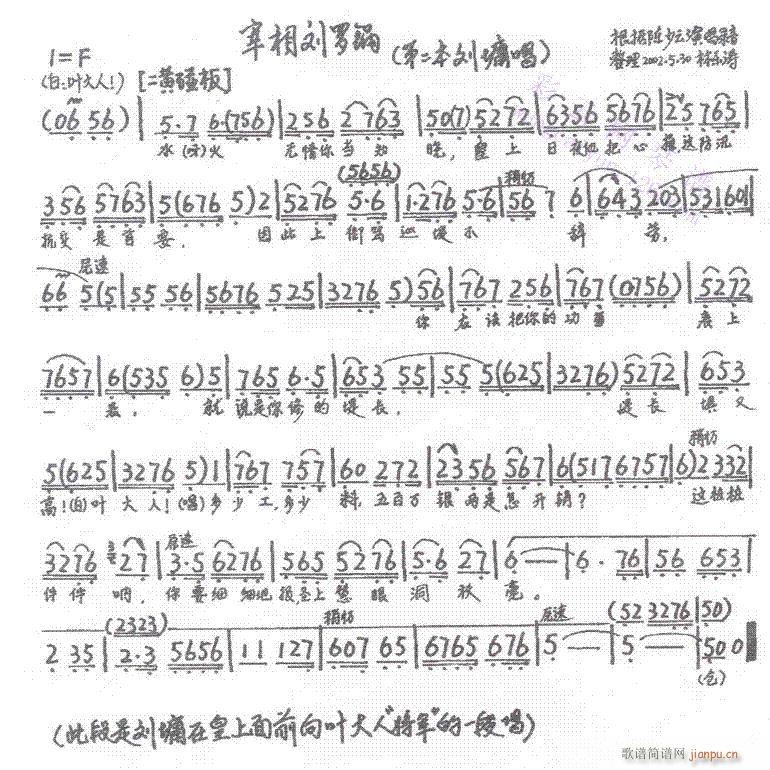 宰相刘罗锅 (第二本刘墉唱)
1=F
根据陈少云演唱录音
(白:叶大人!) [二黄碰板]
整理2002.5.30
(06 56) | 5·7 6·(756) | 256 2763 | 50(7) 5272 | 6356 5676 | 25 765 |
水 火 无情你 当 知 晓, 皇 上 日夜他 把 心 操 这防汛
(5656) 稍切
356 5763 | 5(676 5)2 | 5276 5·6 | 1·276 5·6 | 56 7 6 | 643 203 | 53160 |
抗灾 是首要, 因此上 街鸣 巡堤不 辞 劳,
尼速
66 5(5 | 55 56 | 5676 525 | 3276 5)56 | 767 256 | 767 (0756) | 5272
你 应该 把你的 功 表上
7657 | 6(535 6)5 | 765 6·5 | 653 55 | 55 5(625 | 3276) 5272 | 653
一 表, 就 说是你修的 堤长, 堤长 填又
稍切
5(625 | 3276 5)1 | 767 757 | 60 272 | 2356 567 | 6(517 6757 | 6)2 332 |
高!(白)叶 大人!(唱)多少工,多少 料,五百万 银两是怎开销? 这桩桩
尼速
3276 27 | 3·5 6276 | 565 5276 | 5·6 27 | 6 — | 6· 76 | 56 653 |
件件 呐, 你要细 细地 报,圣上 慧 眼 洞 秋 毫。
(2323) 稍切 尼速 (52 3276 | 50)
2 35 | 2·3 5656 | 11 127 | 607 65 | 6765 676 | 5 — | 5 — | 50 0
(仓)
(此段是刘墉在皇上面前向叶大人"将军"的一段唱)
歌谱简谱网
jianpu.cn